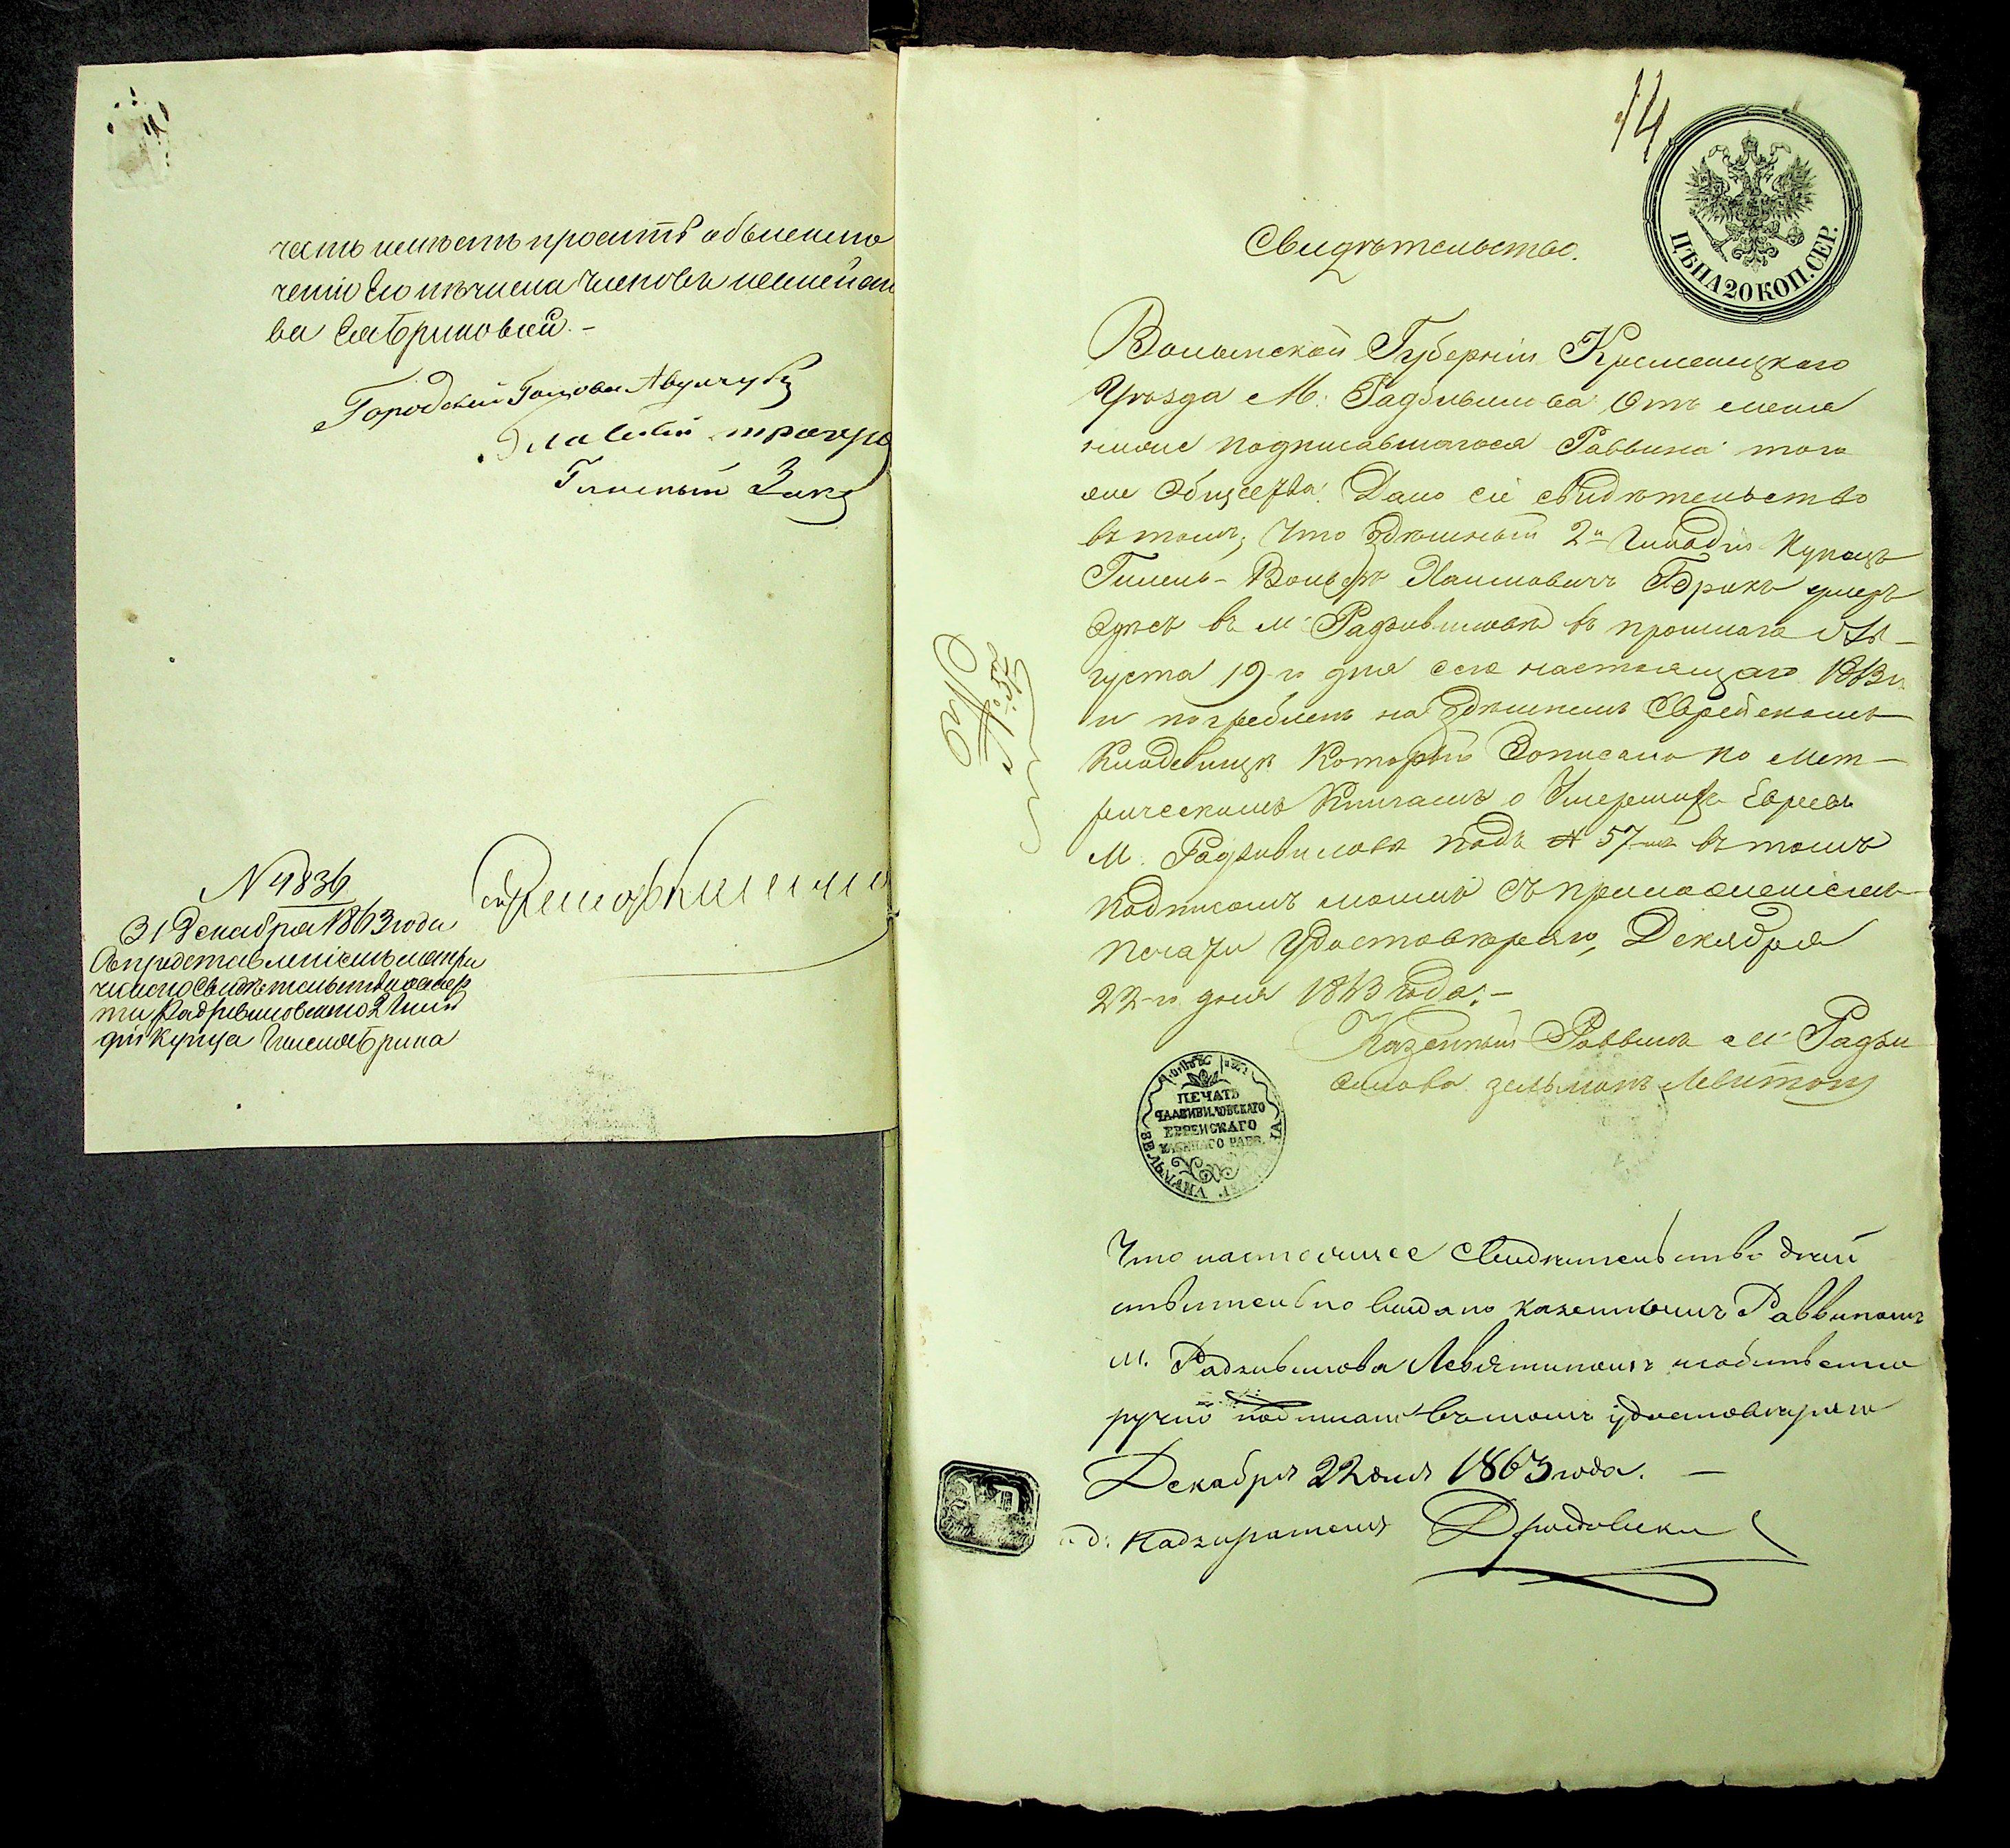 честь имѣетъ просить объ исклю
ченіи Его изъ числа членовъ семейст
ва Его Бриковой. –
Городской Голова
Гласный
Гласный Закс
N 4836
31 Декабря 1863 года
Съ представленіемъ метри
ческаго свидѣтельства о смер
ти Радзивиловскаго 2 Гиль
діи Купца Гиметя Брика
14
ЦѢНА 20 КОП. СЕР.
Свидѣтельство.
Волынской Губерніи Кременецкаго
Уѣзда М. Радзивилова Отъ меня
ниже подписавшагося Раввина того
же Общества. Дано сіе свидѣтельство
въ томъ, Что здѣшный 2й Гильдіи Купецъ
Гимель-Вольфъ Хаимовичъ Брикъ умеръ
здѣсь въ М. Радзивиловѣ въ прошлаго Ав–
густа 19-го дня сего настоящаго 1863 г.
и погребенъ на здѣшнемъ Еврейскомъ
Кладбищѣ Который Записано по мет–
рическимъ Книгамъ о Умершихъ Евреевъ
М. Радзивилова подъ № 57-мъ въ томъ
подписомъ моимъ съ приложеніемъ
печати Удостовѣряю, Декабря
22-го дня 1863 года. –
Казенный Раввинъ М. Радзи
вилова Зельманъ
ПЕЧАТЬ
РАДЗИВИЛОВСКАГО
ЕВРЕЙСКАГО
КАЗЕННАГО РАВВ.
ЗЕЛЬМАНА
Что настоящее Свидѣтельство дѣй
ствительно выдано казеннымъ Раввиномъ
м. Радзивилова Левятиномъ и собственно
ручно подписано въ томъ удостовѣряю
Декабря 22 дня 1863 года. –
и. д. Надзирателя